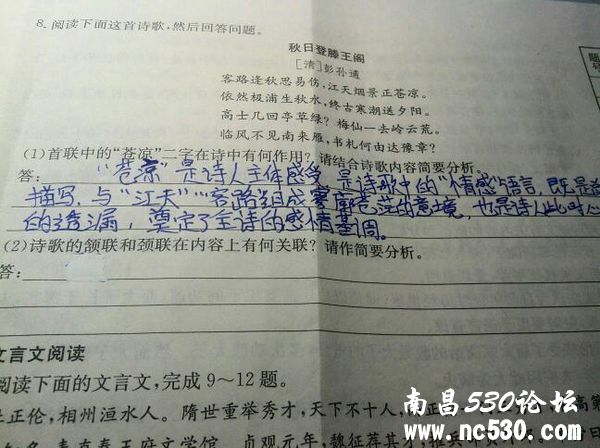 8. 阅读下面这首诗歌,然后回答问题。
秋日登滕王阁
[清]彭孙遹
客路逢秋思易伤,江天烟景正苍凉。
依然极浦生秋水,终古寒潮送夕阳。
高士几回亭草绿?梅仙一去岭云荒。
临风不见南来雁,书札何由达豫章?
(1)首联中的“苍凉”二字在诗中有何作用?请结合诗歌内容简要分析。
答: “苍凉”是诗人主体感受,是诗歌中的“情感”语言,既是景
描写,与“江天”“客路”组成寥廓苍茫的意境,也是诗人此时心
的透漏,奠定了全诗的感情基调。
(2)诗歌的颔联和颈联在内容上有何关联?请作简要分析。
答:
文言文阅读
阅读下面的文言文,完成9~12题。
正伦,相州洹水人。隋世重举秀才,天下不十人,
贞观元年,魏征荐其才
南昌530论坛
www.nc530.com
题
号